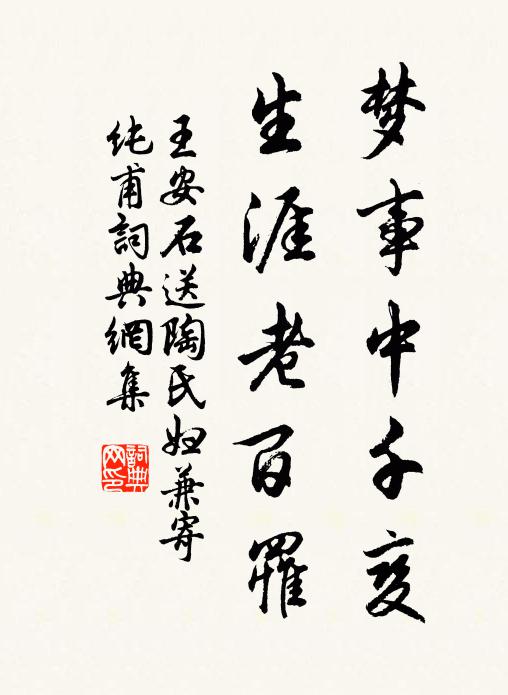 梦事中千变
生涯老百罹
王安石送陶氏妇兼寄
纯甫詞典網集
詞典
网印